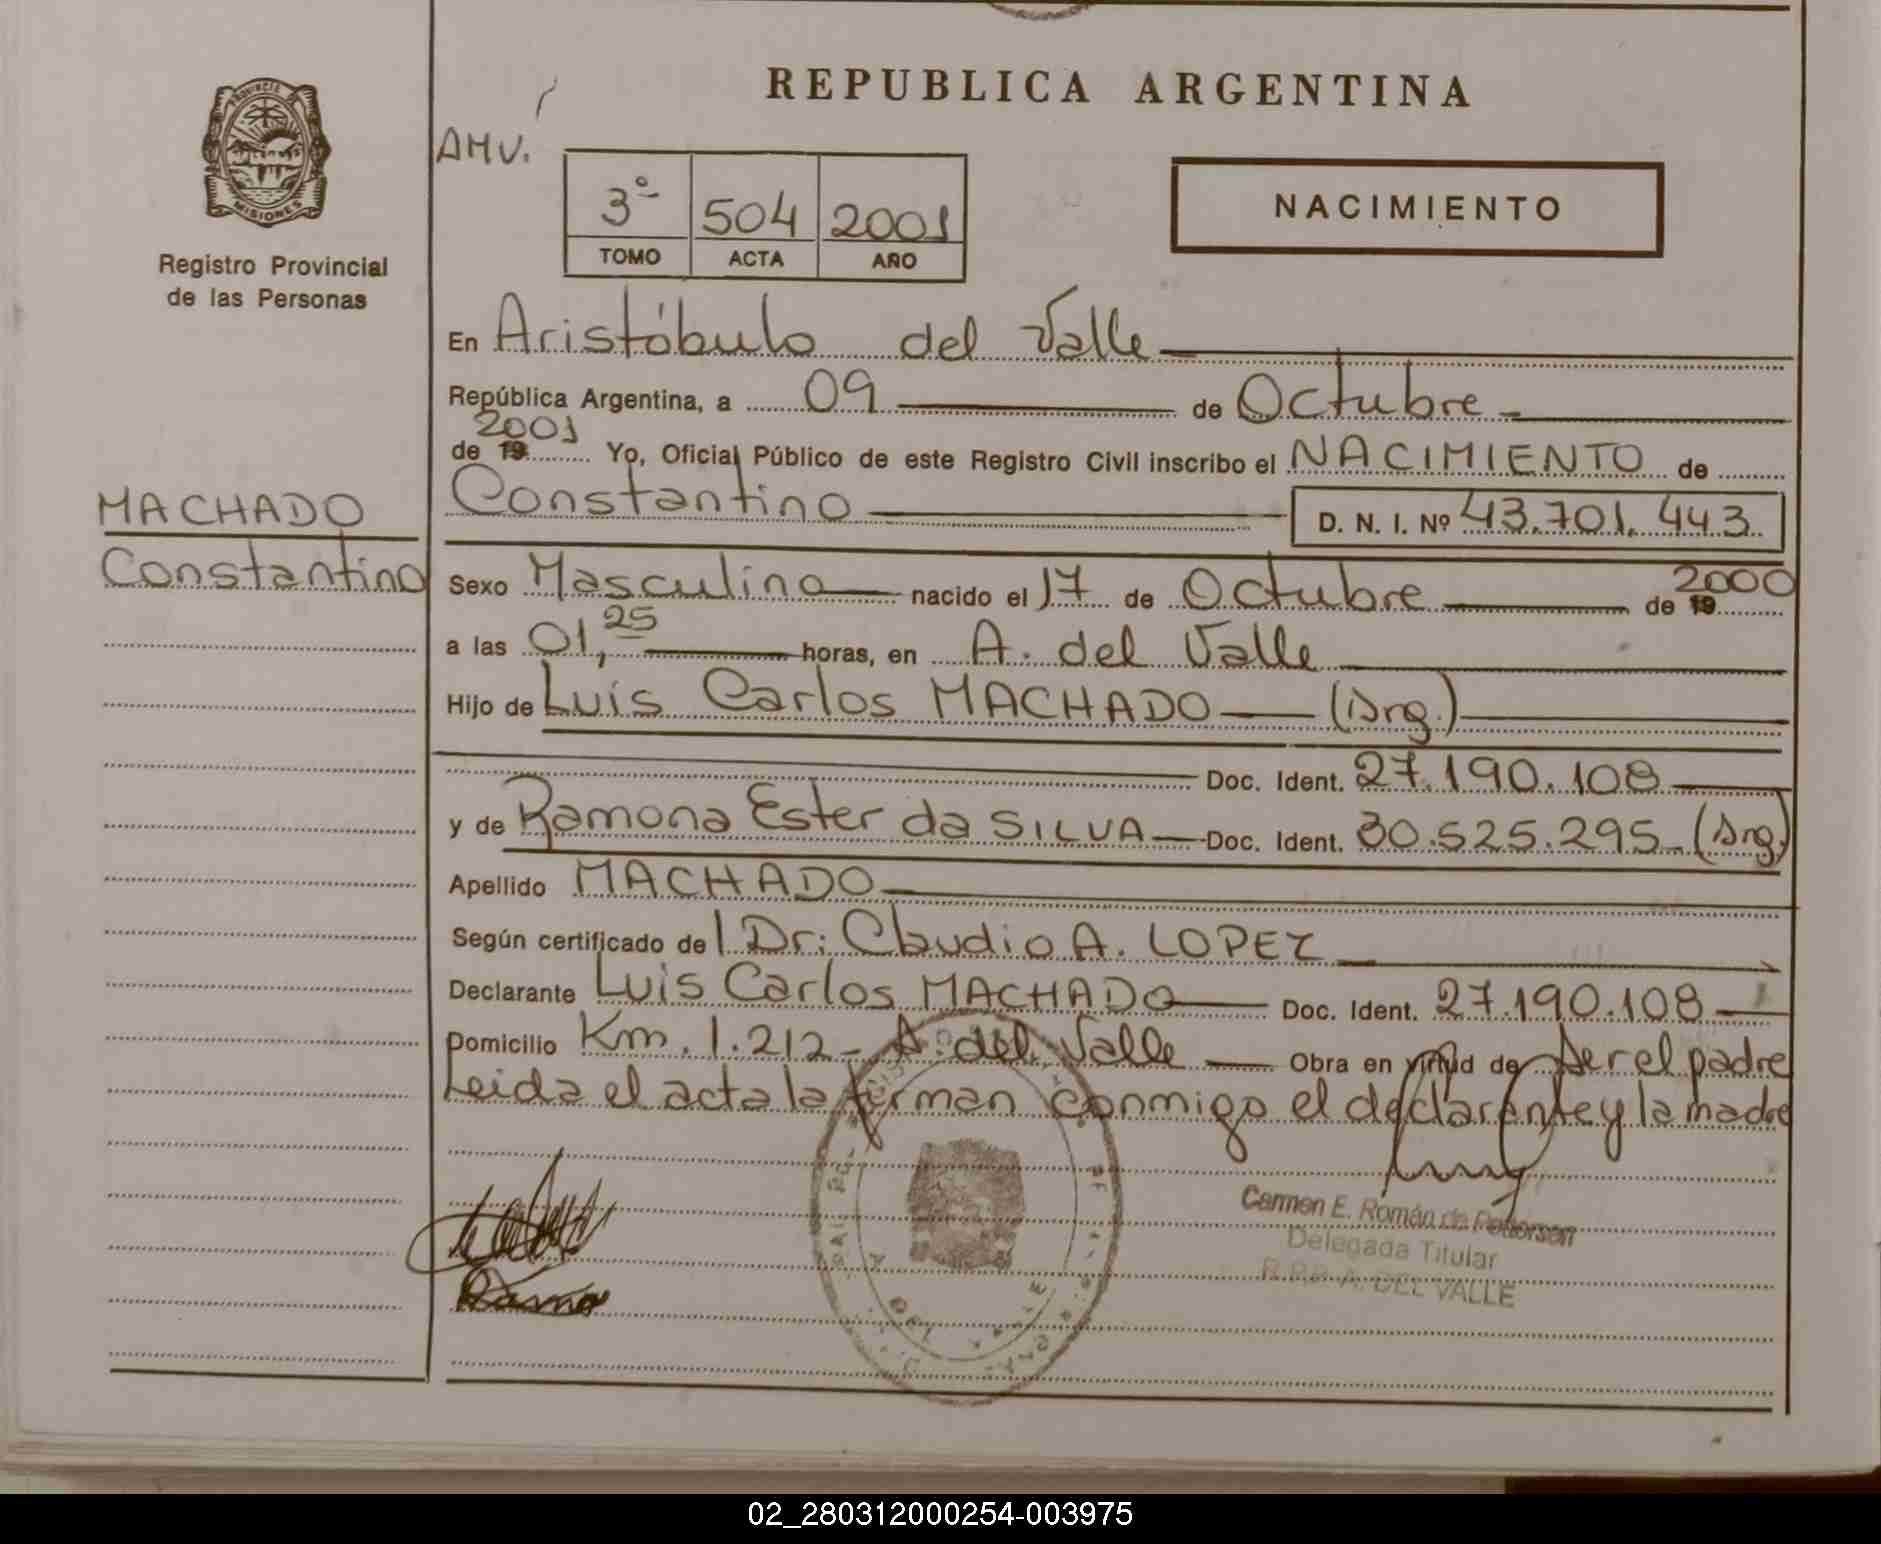 REPUBLICA ARGENTINA
PROVINCIA DE
MISIONES
Registro Provincial
de las Personas
AMV.
3º 504 2001
TOMO ACTA AÑO
NACIMIENTO
En Aristóbulo del Valle
República Argentina, a 09 de Octubre
de 19 2001 Yo, Oficial Público de este Registro Civil inscribo el NACIMIENTO de
MACHADO
Constantino
Constantino D. N. I. Nº 43.701.443
Sexo Masculino nacido el 17 de Octubre de 19 2000
a las 01,25 horas, en A. del Valle
Hijo de Luis Carlos MACHADO (Arg.)
Doc. Ident. 27.190.108
y de Ramona Ester da SILVA Doc. Ident. 30.525.295 (Arg.)
Apellido MACHADO
Según certificado del Dr: Claudio A. LOPEZ
Declarante Luis Carlos MACHADO Doc. Ident. 27.190.108
Domicilio Km. 1.212 - A. del Valle Obra en virtud de ser el padre
Leida el acta la firman conmigo el declarante y la madre
Carmen E. Román de Pedersen
Delegada Titular
R.P.P. A. DEL VALLE
02_280312000254-003975